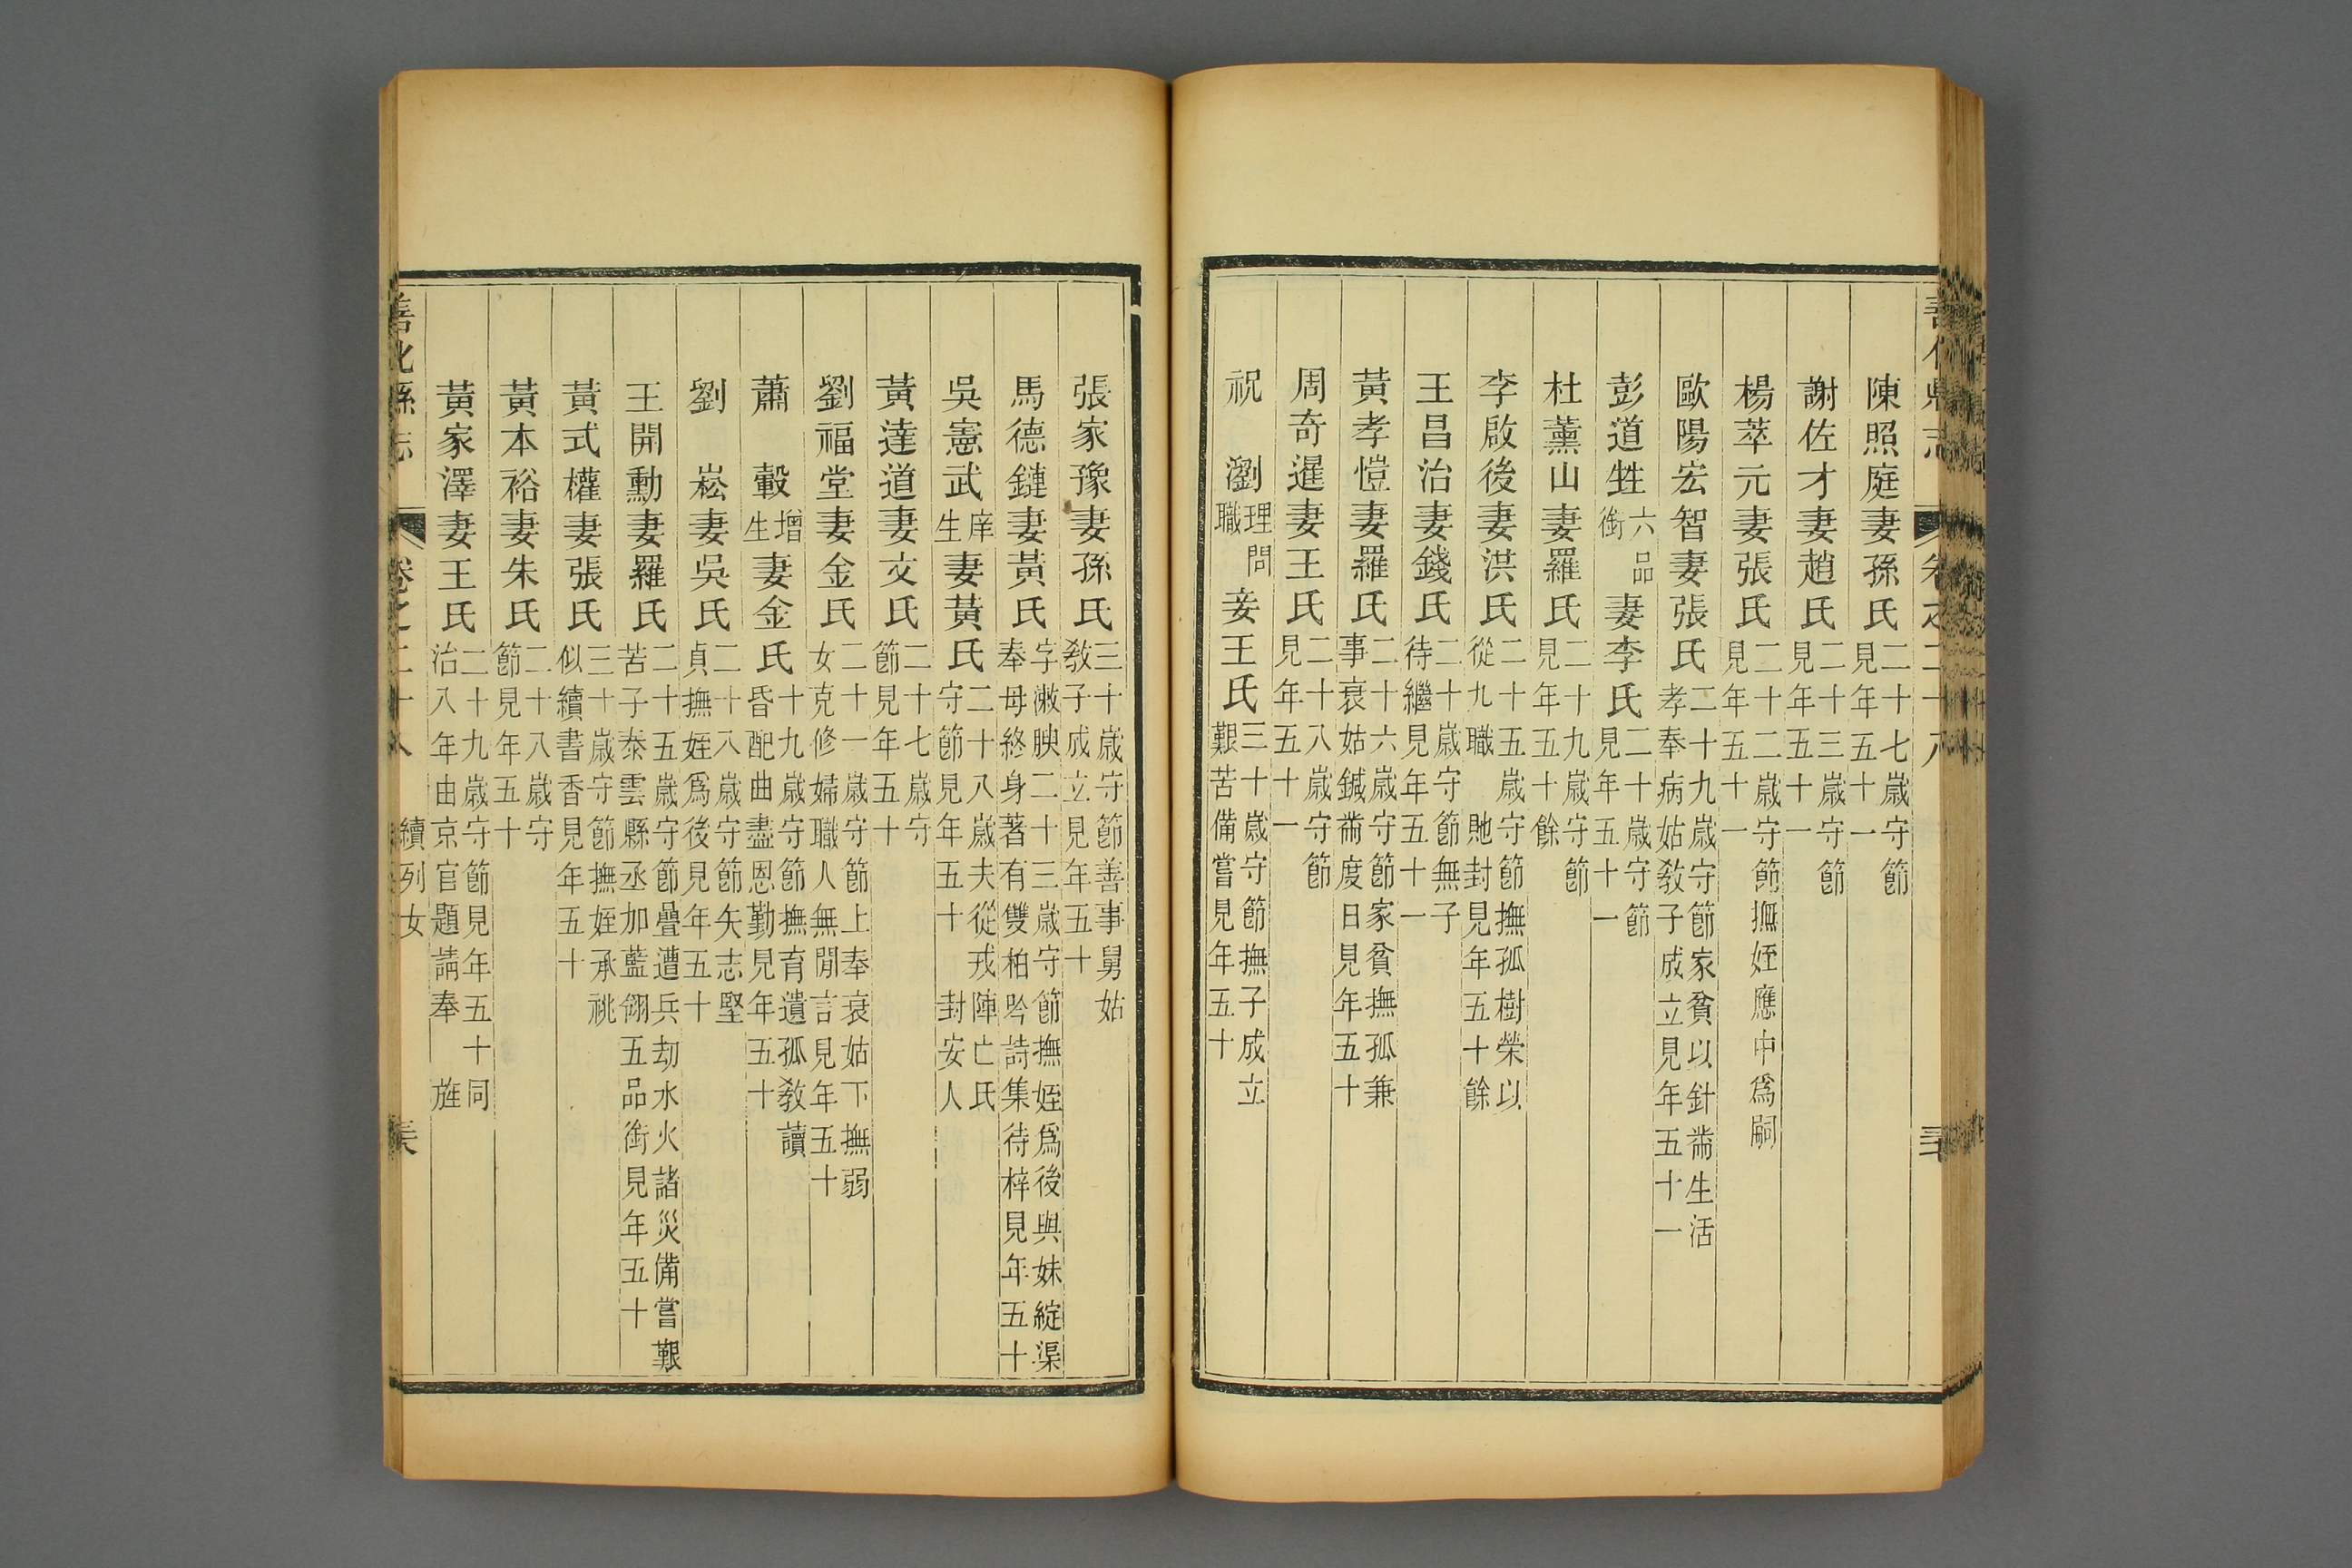 陳照庭妻孫氏二十七歲守節見年五十一
謝佐才妻趙氏二十三歲守節見年五十一
楊萃元妻張氏二十二歲守節撫姪應中爲嗣見年五十一
歐陽宏智妻張氏二十九歲守節家貧以針黹生活孝奉病姑教子成立見年五十一
彭道甡六品銜妻李氏二十歲守節見年五十一
杜薰山妻羅氏二十九歲守節見年五十餘
李啟後妻洪氏二十五歲守節撫孤樹榮以從九職貤封見年五十餘
王昌治妻錢氏二十歲守節無子待繼見年五十一
黃孝愷妻羅氏二十六歲守節家貧撫孤兼事衰姑鍼黹度日見年五十
周奇暹妻王氏二十八歲守節見年五十一
祝瀏理問職妾王氏三十歲守節撫子成立艱苦備嘗見年五十
張家豫妻孫氏三十歲守節善事舅姑教子成立見年五十
馬德鏈妻黃氏字漱腴二十三歲守節撫姪爲後與妹綻渠奉母終身著有雙柏吟詩集待梓見年五十
吳憲武庠生妻黃氏二十八歲夫從戎陣亡氏守節見年五十封安人
黃達道妻文氏二十七歲守節見年五十
劉福堂妻金氏二十一歲守節上奉衰姑下撫弱女克修婦職人無閒言見年五十
蕭轂增生妻金氏十九歲守節撫育遺孤教讀昏配曲盡恩勤見年五十
劉崧妻吳氏二十八歲守節矢志堅貞撫姪爲後見年五十
王開勳妻羅氏二十五歲守節疊遭兵劫水火諸災備嘗艱苦子泰雲縣丞加藍翎五品銜見年五十
黃式權妻張氏三十歲守節撫姪承祧似續書香見年五十
黃本裕妻朱氏二十八歲守節見年五十
黃家澤妻王氏二十九歲守節見年五十同治八年由京官題請奉旌
善化縣志 卷之二十八 續列女